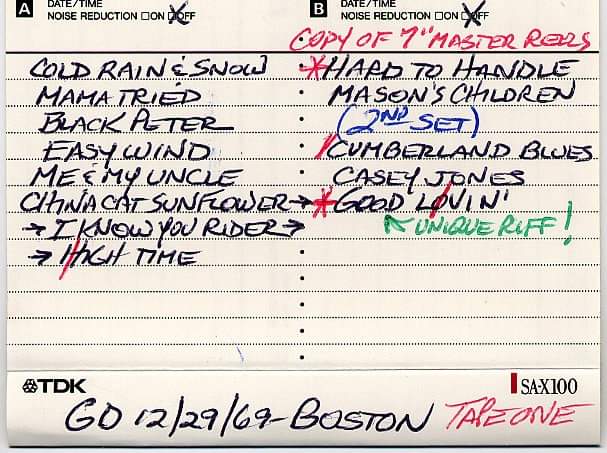 A DATE/TIME
NOISE REDUCTION □ON ☒OFF
B DATE/TIME
NOISE REDUCTION □ON ☒OFF
COPY OF 7" MASTER REELS
COLD RAIN & SNOW
MAMA TRIED
BLACK PETER
EASY WIND
ME & MY UNCLE
CHINA CAT SUNFLOWER →
→ I KNOW YOU RIDER →
→ HIGH TIME
*HARD TO HANDLE
MASON'S CHILDREN
(2ND SET)
CUMBERLAND BLUES
CASEY JONES
*GOOD LOVIN'
UNIQUE RIFF!
TDK
SA-X100
GD 12/29/69 - BOSTON TAPE ONE